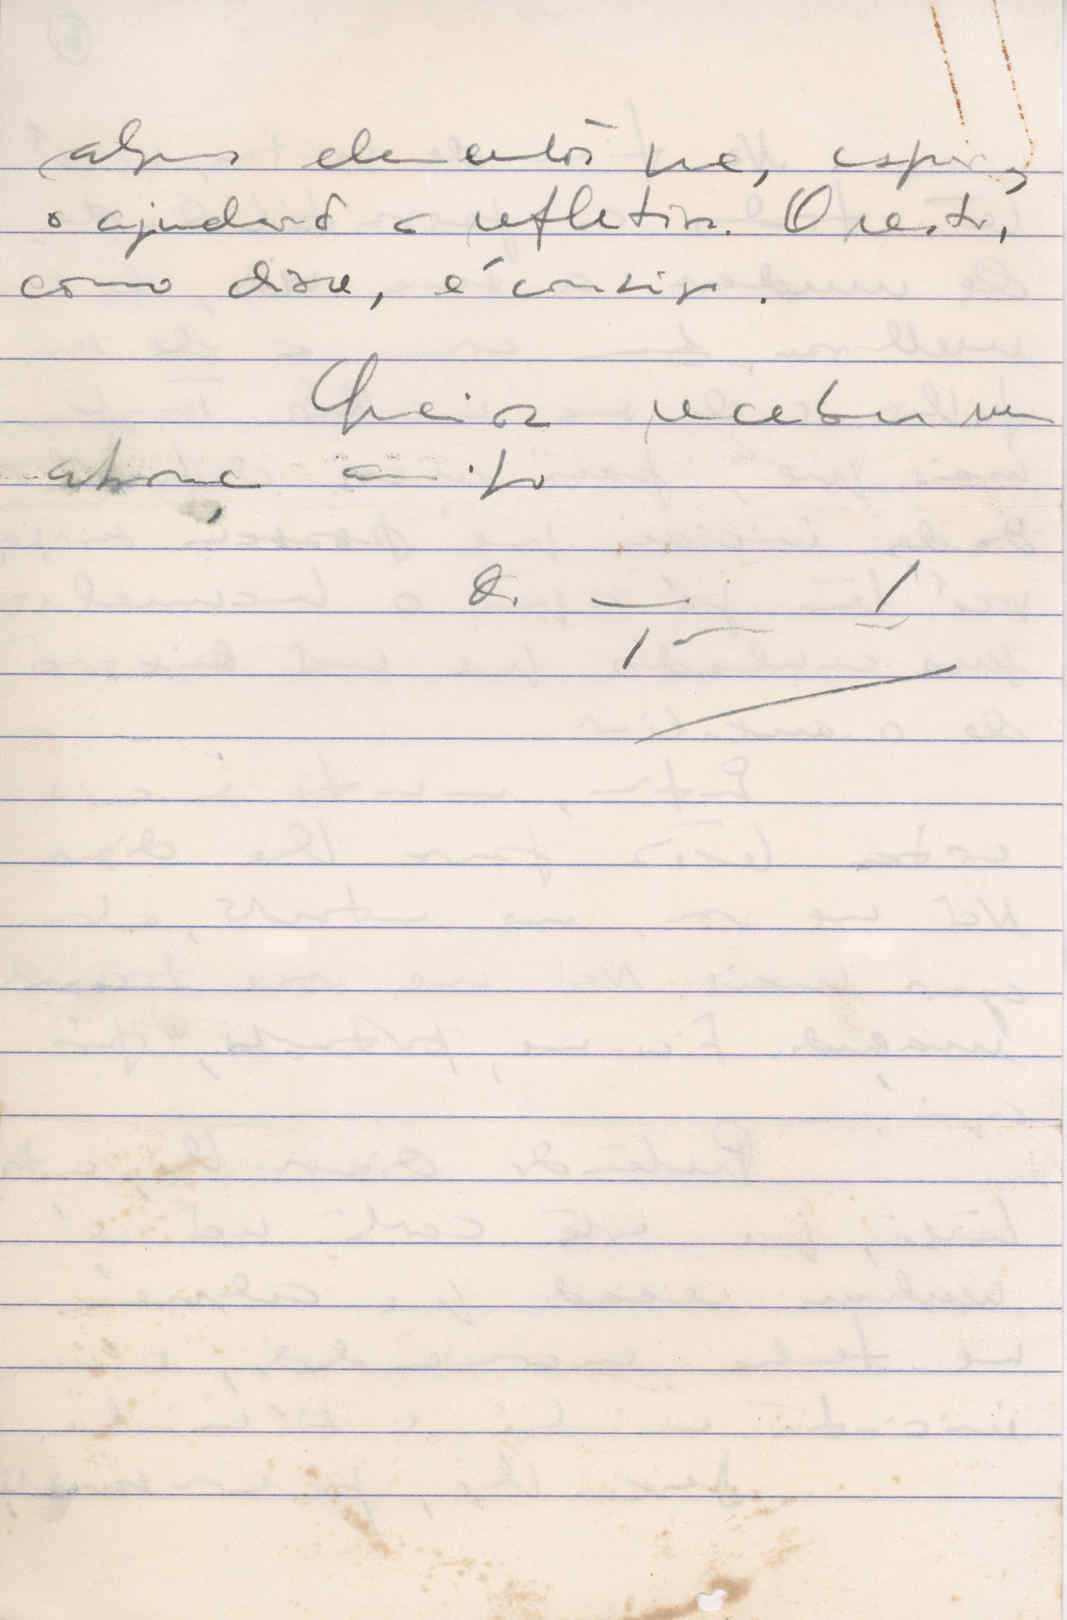 alguns elementos que, espero,
o ajudarão a refletir. O resto,
como disse, é consigo.
Queira receber um
abraço amigo
do